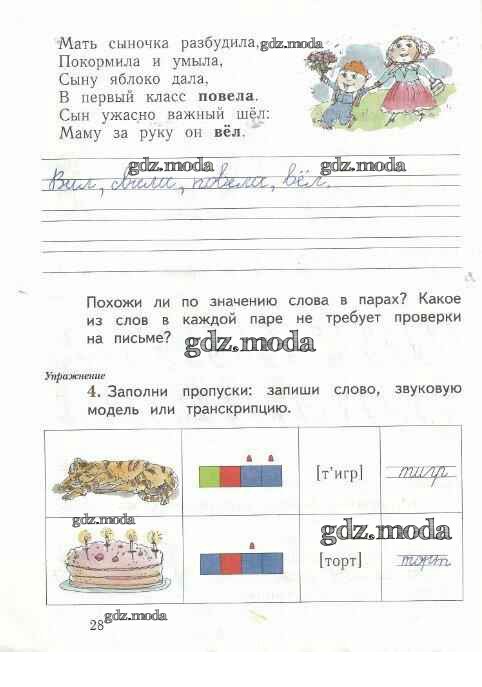 Мать сыночка разбудила, gdz.moda
Покормила и умыла,
Сыну яблоко дала,
В первый класс повела.
Сын ужасно важный шёл:
Маму за руку он вёл.
gdz.moda gdz.moda
Вил, свили, повели, вёл.
Похожи ли по значению слова в парах? Какое
из слов в каждой паре не требует проверки
на письме? gdz.moda
Упражнение
4. Заполни пропуски: запиши слово, звуковую
модель или транскрипцию.
[т'игр] тигр
gdz.moda gdz.moda
[торт] торт
28 gdz.moda